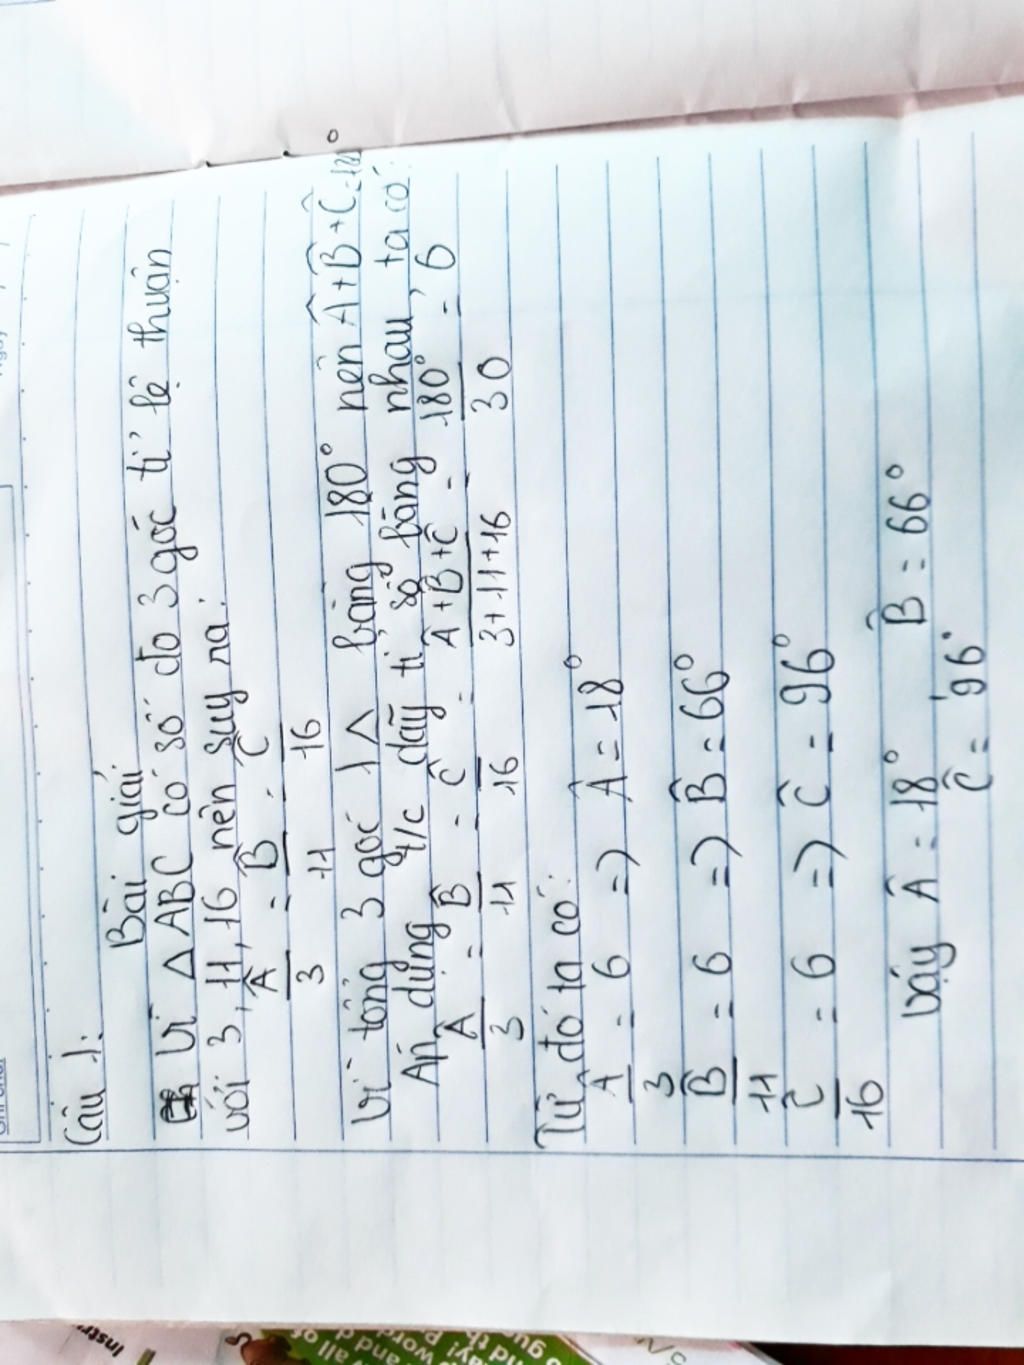 Câu 1:
Bài giải
Vì △ABC có số đo 3 góc tỉ lệ thuận
với 3, 11, 16 nên suy ra:
Â/3 = B̂/11 = Ĉ/16
Vì tổng 3 góc 1 △ bằng 180° nên Â+B̂+Ĉ=180°
Áp dụng t/c dãy tỉ số bằng nhau, ta có:
Â/3 = B̂/11 = Ĉ/16 = Â+B̂+Ĉ/3+11+16 = 180°/30 = 6
Từ đó ta có:
Â/3 = 6 => Â = 18°
B̂/11 = 6 => B̂ = 66°
Ĉ/16 = 6 => Ĉ = 96°
Vậy Â = 18° B̂ = 66°
Ĉ = 96°